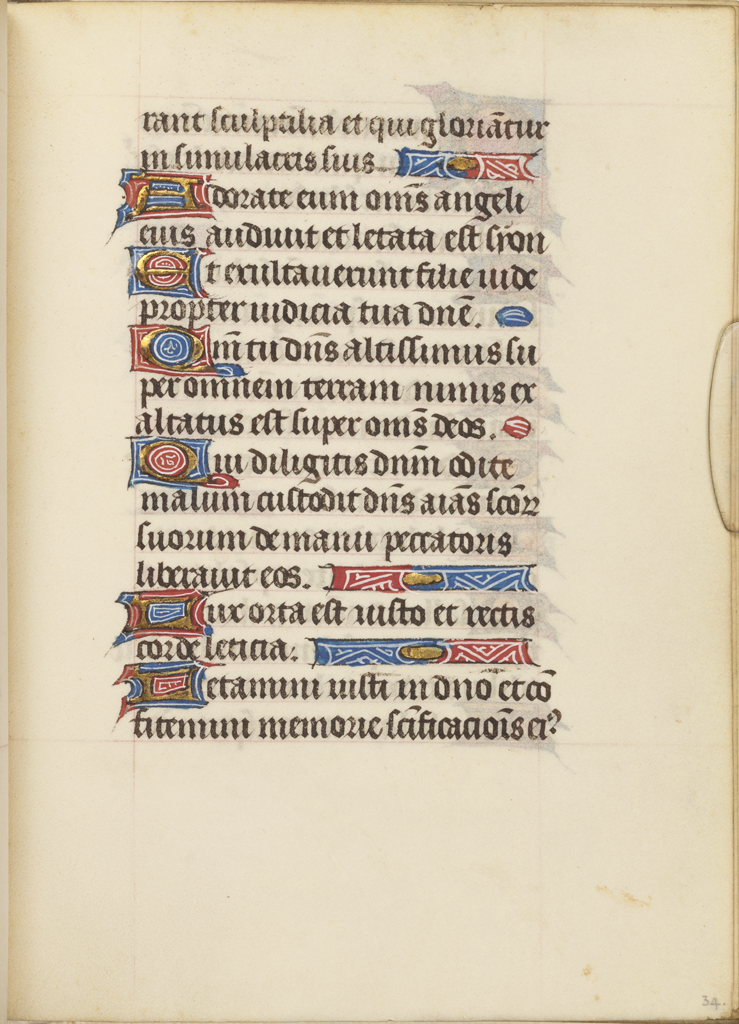 rant sculptilia et qui gloriãtur
in simulacris suis.
Adorate eum om̃s angeli
eius audiuit et letata est syon
Et exultauerunt filie iude
propter iudicia tua dnẽ.
Qm̃ tu dñs altissimus su
per omnem terram nimis ex
altatus est super om̃s deos.
Qui diligitis dnm̃ odite
malum custodit dñs aĩas scõꝝ
suorum de manu peccatoris
liberauit eos.
Lux orta est iusto et rectis
corde leticia.
Letamini iusti in dño et cõ
fitemini memorie scĩficacioĩs ei⁹
34.